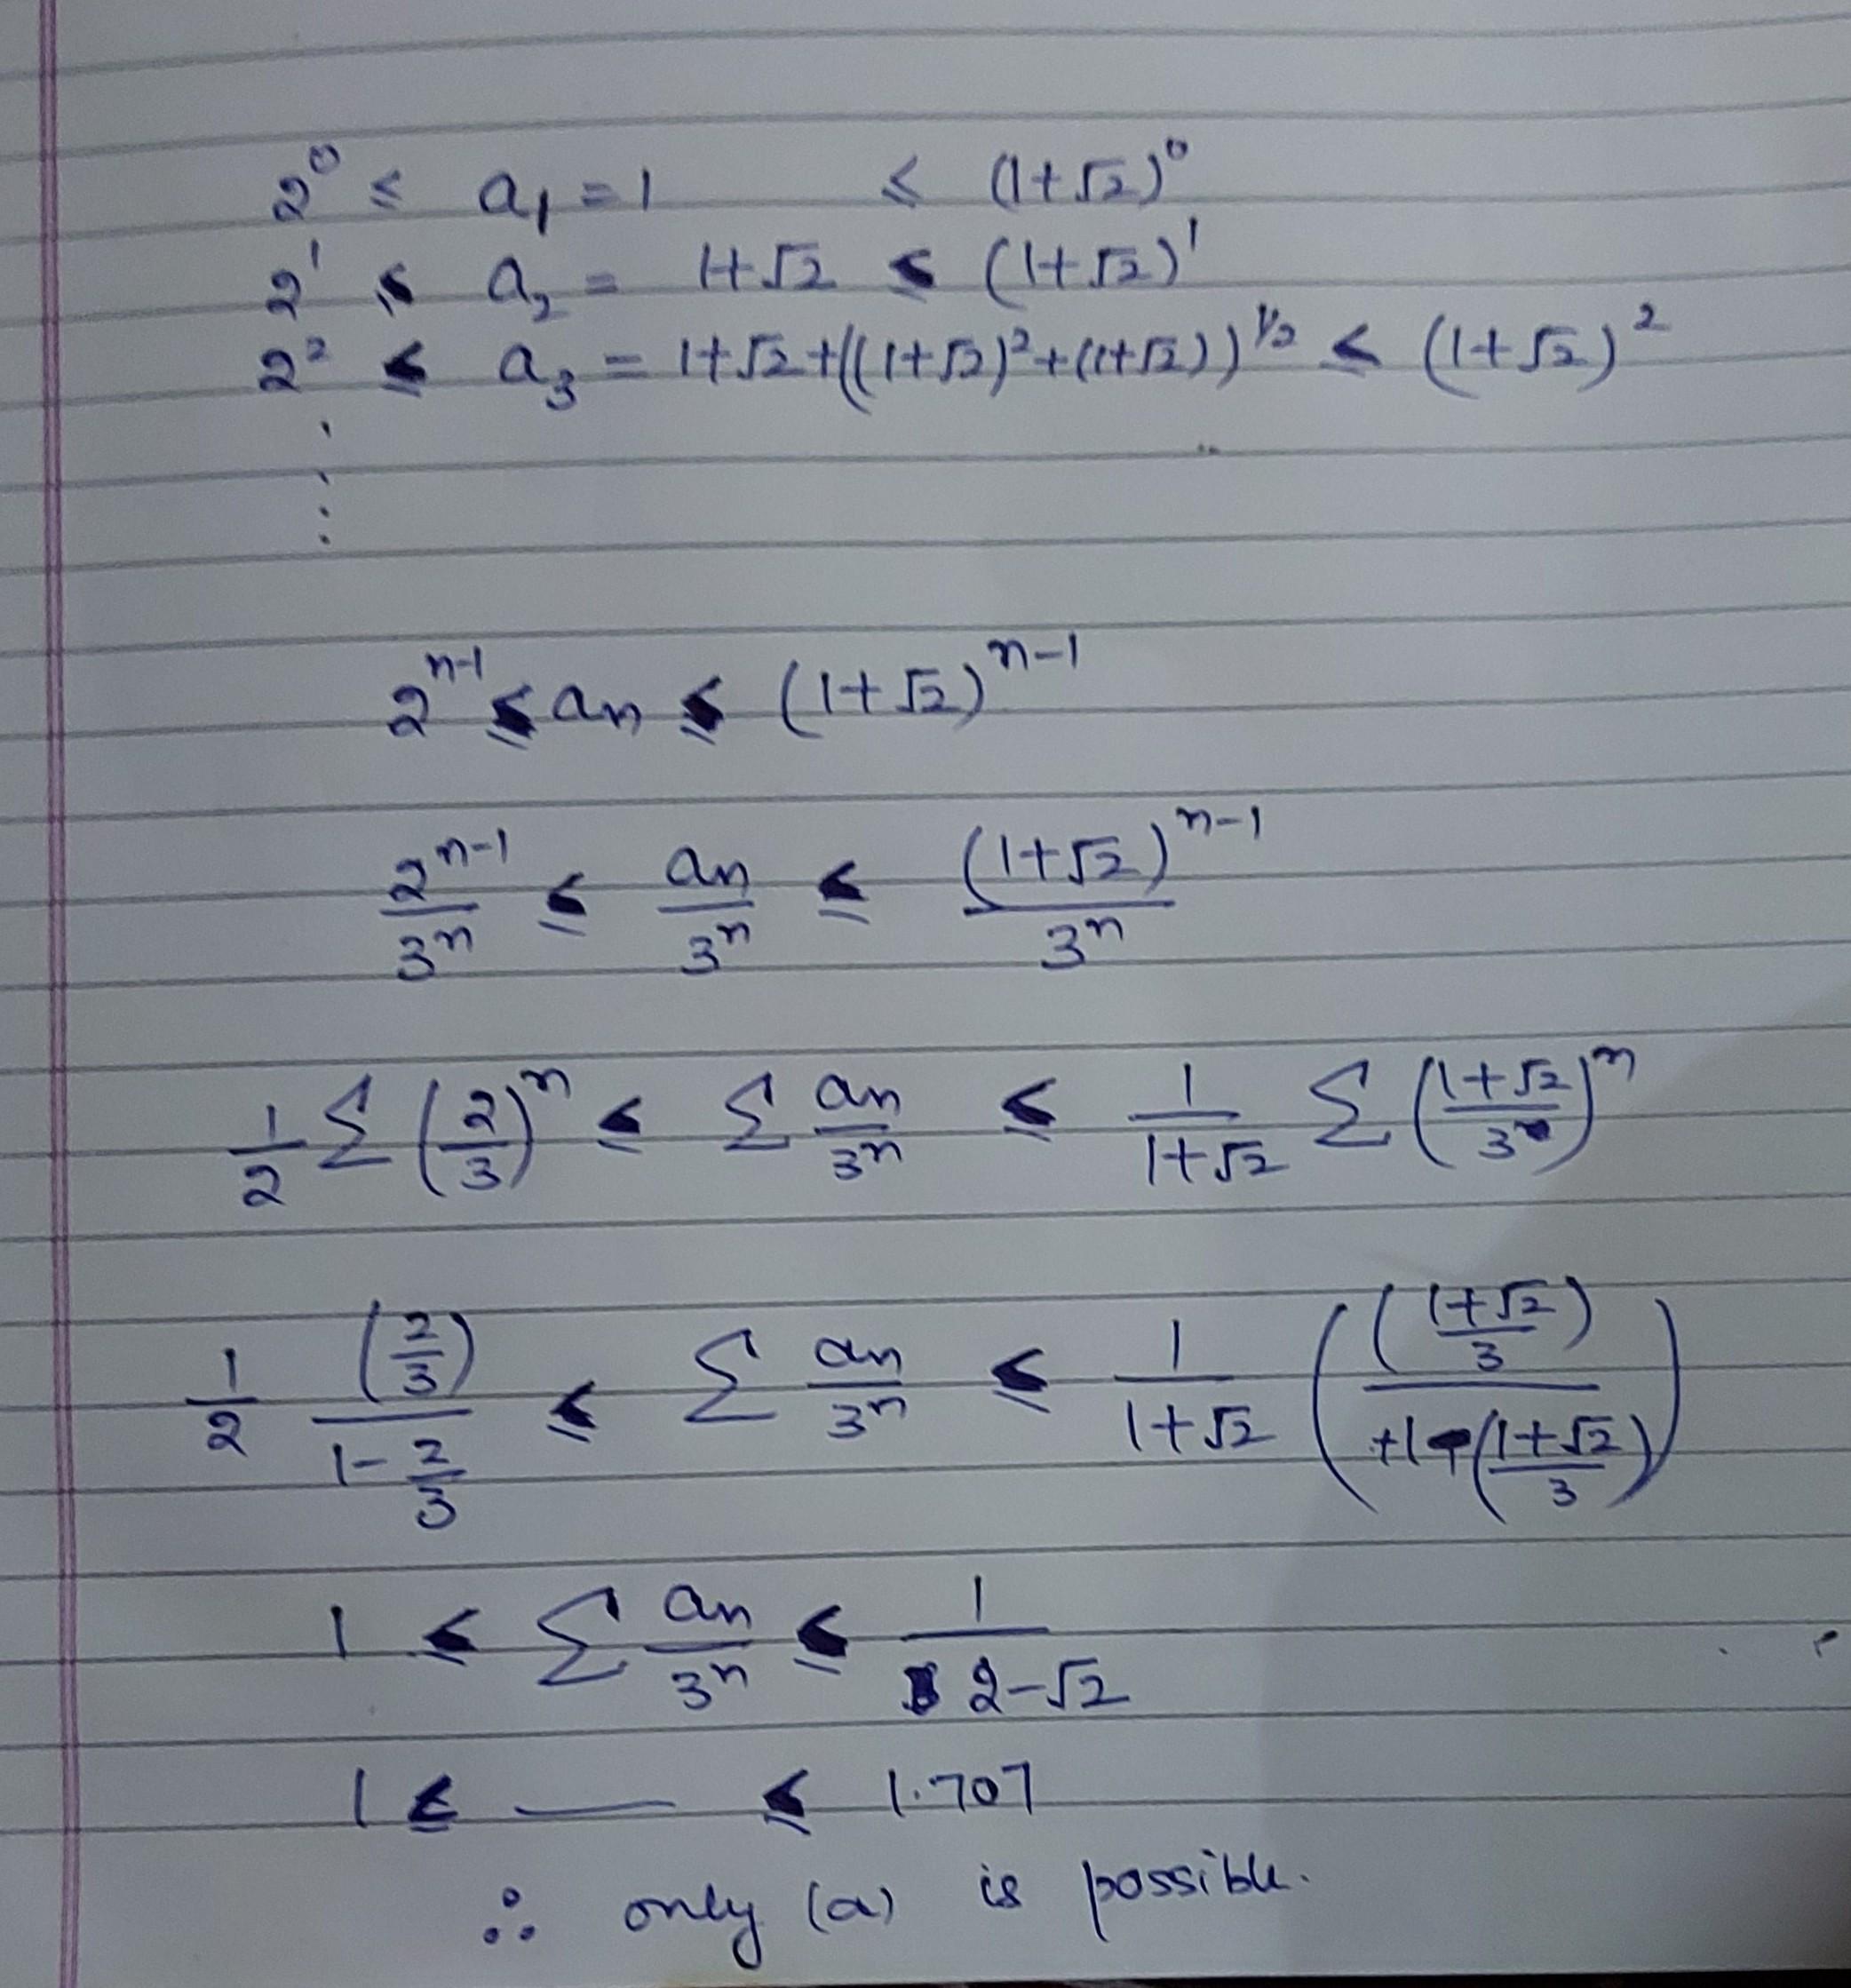 2⁰ ≤ a₁ = 1 ≤ (1+√2)⁰
2¹ ≤ a₂ = 1+√2 ≤ (1+√2)¹
2² ≤ a₃ = 1+√2+((1+√2)²+(1+√2))^1/2 ≤ (1+√2)²
⋮
2^n-1 ≤ an ≤ (1+√2)^n-1
2^n-1/3^n ≤ an/3^n ≤ (1+√2)^n-1/3^n
1/2 Σ (2/3)^n ≤ Σ an/3^n ≤ 1/1+√2 Σ (1+√2/3)^n
1/2 (2/3)/1-2/3 ≤ Σ an/3^n ≤ 1/1+√2 (((1+√2)/3)/+1-(1+√2/3))
1 ≤ Σ an/3^n ≤ 1/2-√2
1 ≤ — ≤ 1.707
∴ only (a) is possible.